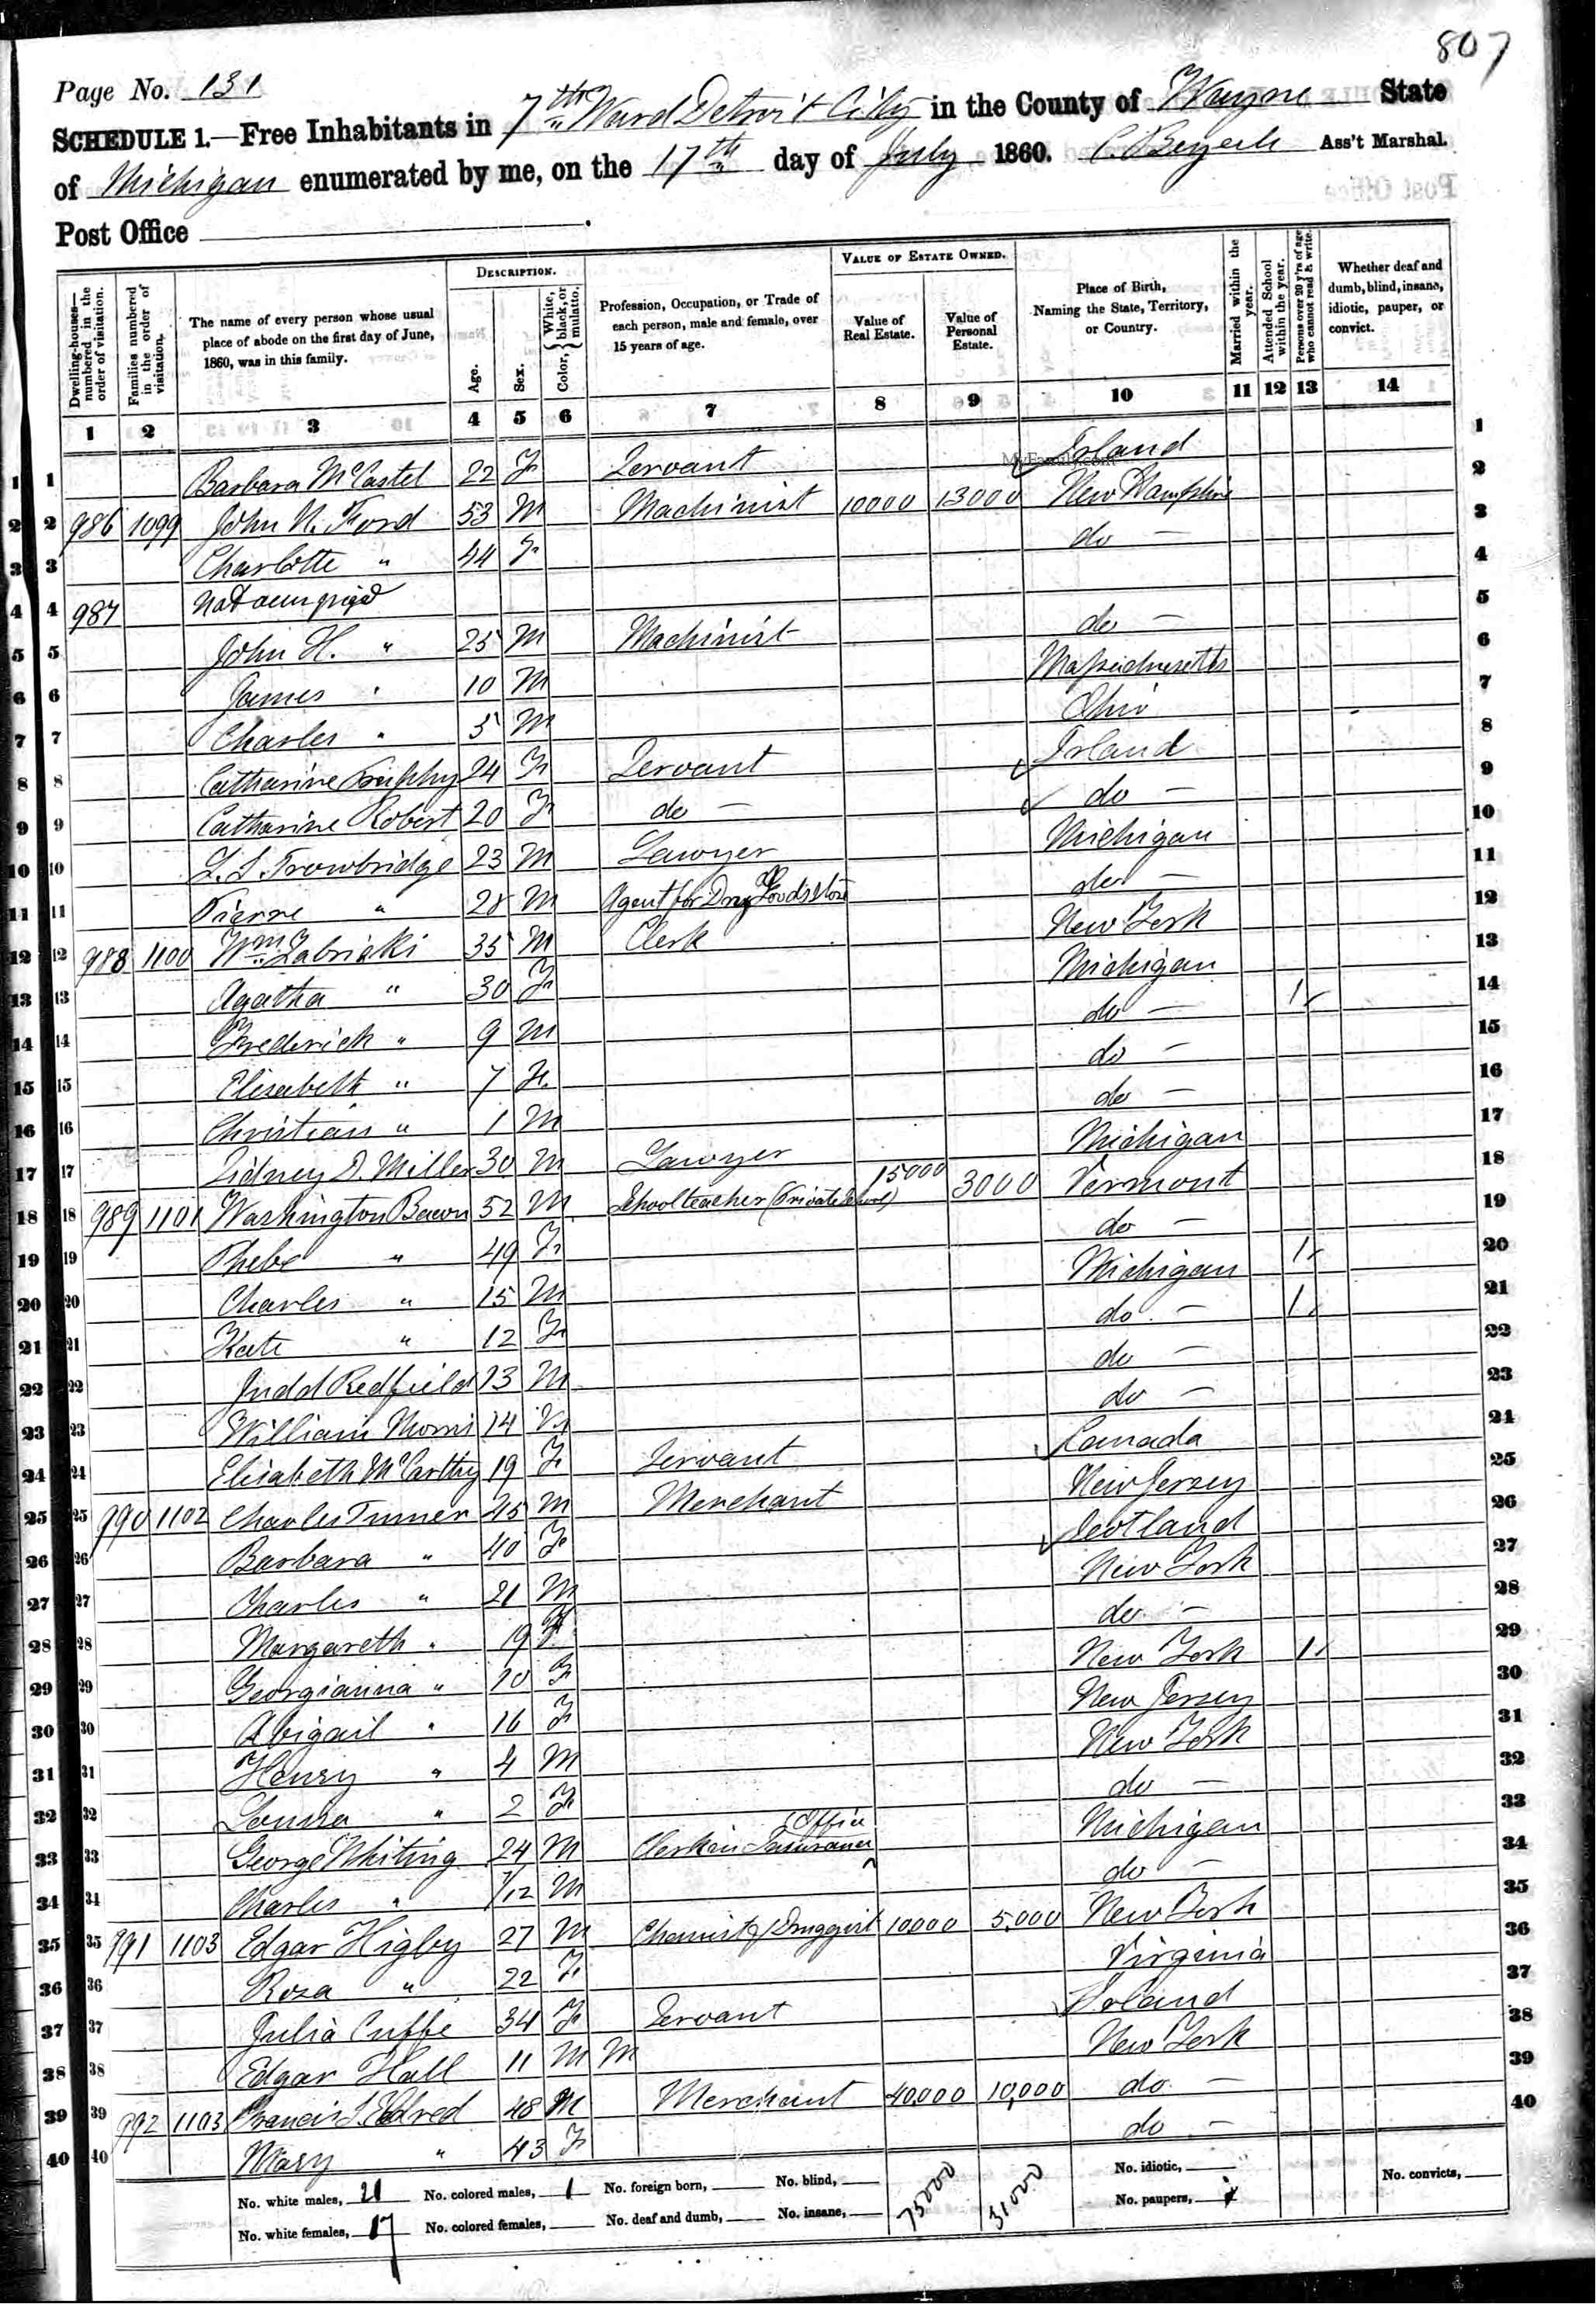 807
Page No. 131
SCHEDULE 1.—Free Inhabitants in 7th Ward Detroit City in the County of Wayne State
of Michigan enumerated by me, on the 17th day of July 1860. Ass't Marshal.
Post Office
Dwelling-houses—numbered in the order of visitation.
Families numbered in the order of visitation.
The name of every person whose usual place of abode on the first day of June, 1860, was in this family.
DESCRIPTION.
Age.
Sex.
Color, White, black, or mulatto.
Profession, Occupation, or Trade of each person, male and female, over 15 years of age.
VALUE OF ESTATE OWNED.
Value of Real Estate.
Value of Personal Estate.
Place of Birth, Naming the State, Territory, or Country.
Married within the year.
Attended School within the year.
Persons over 20 y'rs of age who cannot read & write.
Whether deaf and dumb, blind, insane, idiotic, pauper, or convict.
1 2 3 4 5 6 7 8 9 10 11 12 13 14
MyFamily.com
1 1 Barbara McCastel 22 F Servant Irland 1
2 2 986 1099 John N. Ford 53 M Machinist 10000 13000 New Hampshire 2
3 3 Charlotte " 44 F do — 3
4 4 987 Not occupied 4
5 5 John H. " 25 M Machinist do — 5
6 6 James " 10 M Massachusetts 6
7 7 Charles " 5 M Ohio 7
8 8 Catharine 24 F Servant Irland 8
9 9 Catharine Robert 20 F do — do — 9
10 10 L. S. Trowbridge 23 M Lawyer Michigan 10
11 11 Pierre " 28 M Agent for Dry Goods store do — 11
12 12 988 1100 Wm Zabriski 35 M Clerk New York 12
13 13 Agatha " 30 F Michigan 13
14 14 Frederick " 9 M do — 1 14
15 15 Elisabeth " 7 F do — 15
16 16 Christian " 1 M do — 16
17 17 Sidney D. Miller 30 M Lawyer Michigan 17
18 18 989 1101 Washington Bacon 52 M Schoolteacher (Private School) 15000 3000 Vermont 18
19 19 Phebe " 49 F do — 19
20 20 Charles " 15 M Michigan 1 20
21 21 Kate " 12 F do — 1 21
22 22 Judd Redfield 13 M do — 22
23 23 William Morris 14 M do — 23
24 24 Elisabeth McCarthy 19 F Servant Canada 24
25 25 990 1102 Charles Turner 45 M Merchant New Jersey 25
26 26 Barbara " 40 F Scotland 26
27 27 Charles " 21 M New York 27
28 28 Margareth " 19 F do — 28
29 29 Georgianna " 10 F New York 1 29
30 30 Abigail " 16 F New Jersey 30
31 31 Henry " 4 M New York 31
32 32 Louisa " 2 F do — 32
33 33 George Whiting 24 M Clerk in Insurance Office Michigan 33
34 34 Charles " 7/12 M do — 34
35 35 991 1103 Edgar Higby 27 M Chemist & Druggist 10000 5,000 New York 35
36 36 Roza " 22 F Virginia 36
37 37 Julia Cuffe 34 F Servant Irland 37
38 38 Edgar Hall 11 M M New York 38
39 39 992 1103 Francis L. Eldred 48 M Merchant 40,000 10,000 do — 39
40 40 Mary " 43 F do — 40
No. white males, 21 No. colored males, 1 No. foreign born, No. blind, 75000 31000 No. idiotic, No. convicts,
No. white females, 17 No. colored females, No. deaf and dumb, No. insane, No. paupers,